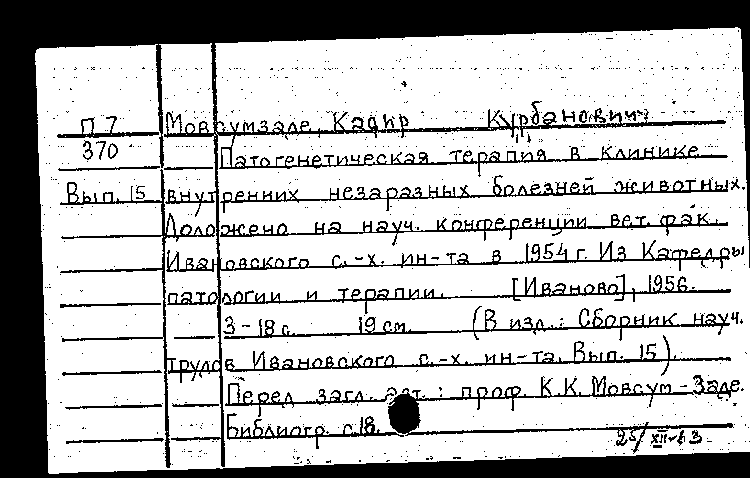 П 7 Мовсумзаде, Кадир Курбанович
370 Патогенетическая терапия в клинике
Вып. 15 внутренних незаразных болезней животных.
Доложено на науч. конференции вет. фак.
Ивановского с.-х. ин-та в 1954 г. Из Кафедры
патологии и терапии. [Иваново], 1956.
3-18 с. 19 см. (В изд.: Сборник науч.
трудов Ивановского с.-х. ин-та. Вып. 15).
Перед загл. авт.: проф. К.К. Мовсум-Заде.
Библиогр. с. 18.
25/XII-63